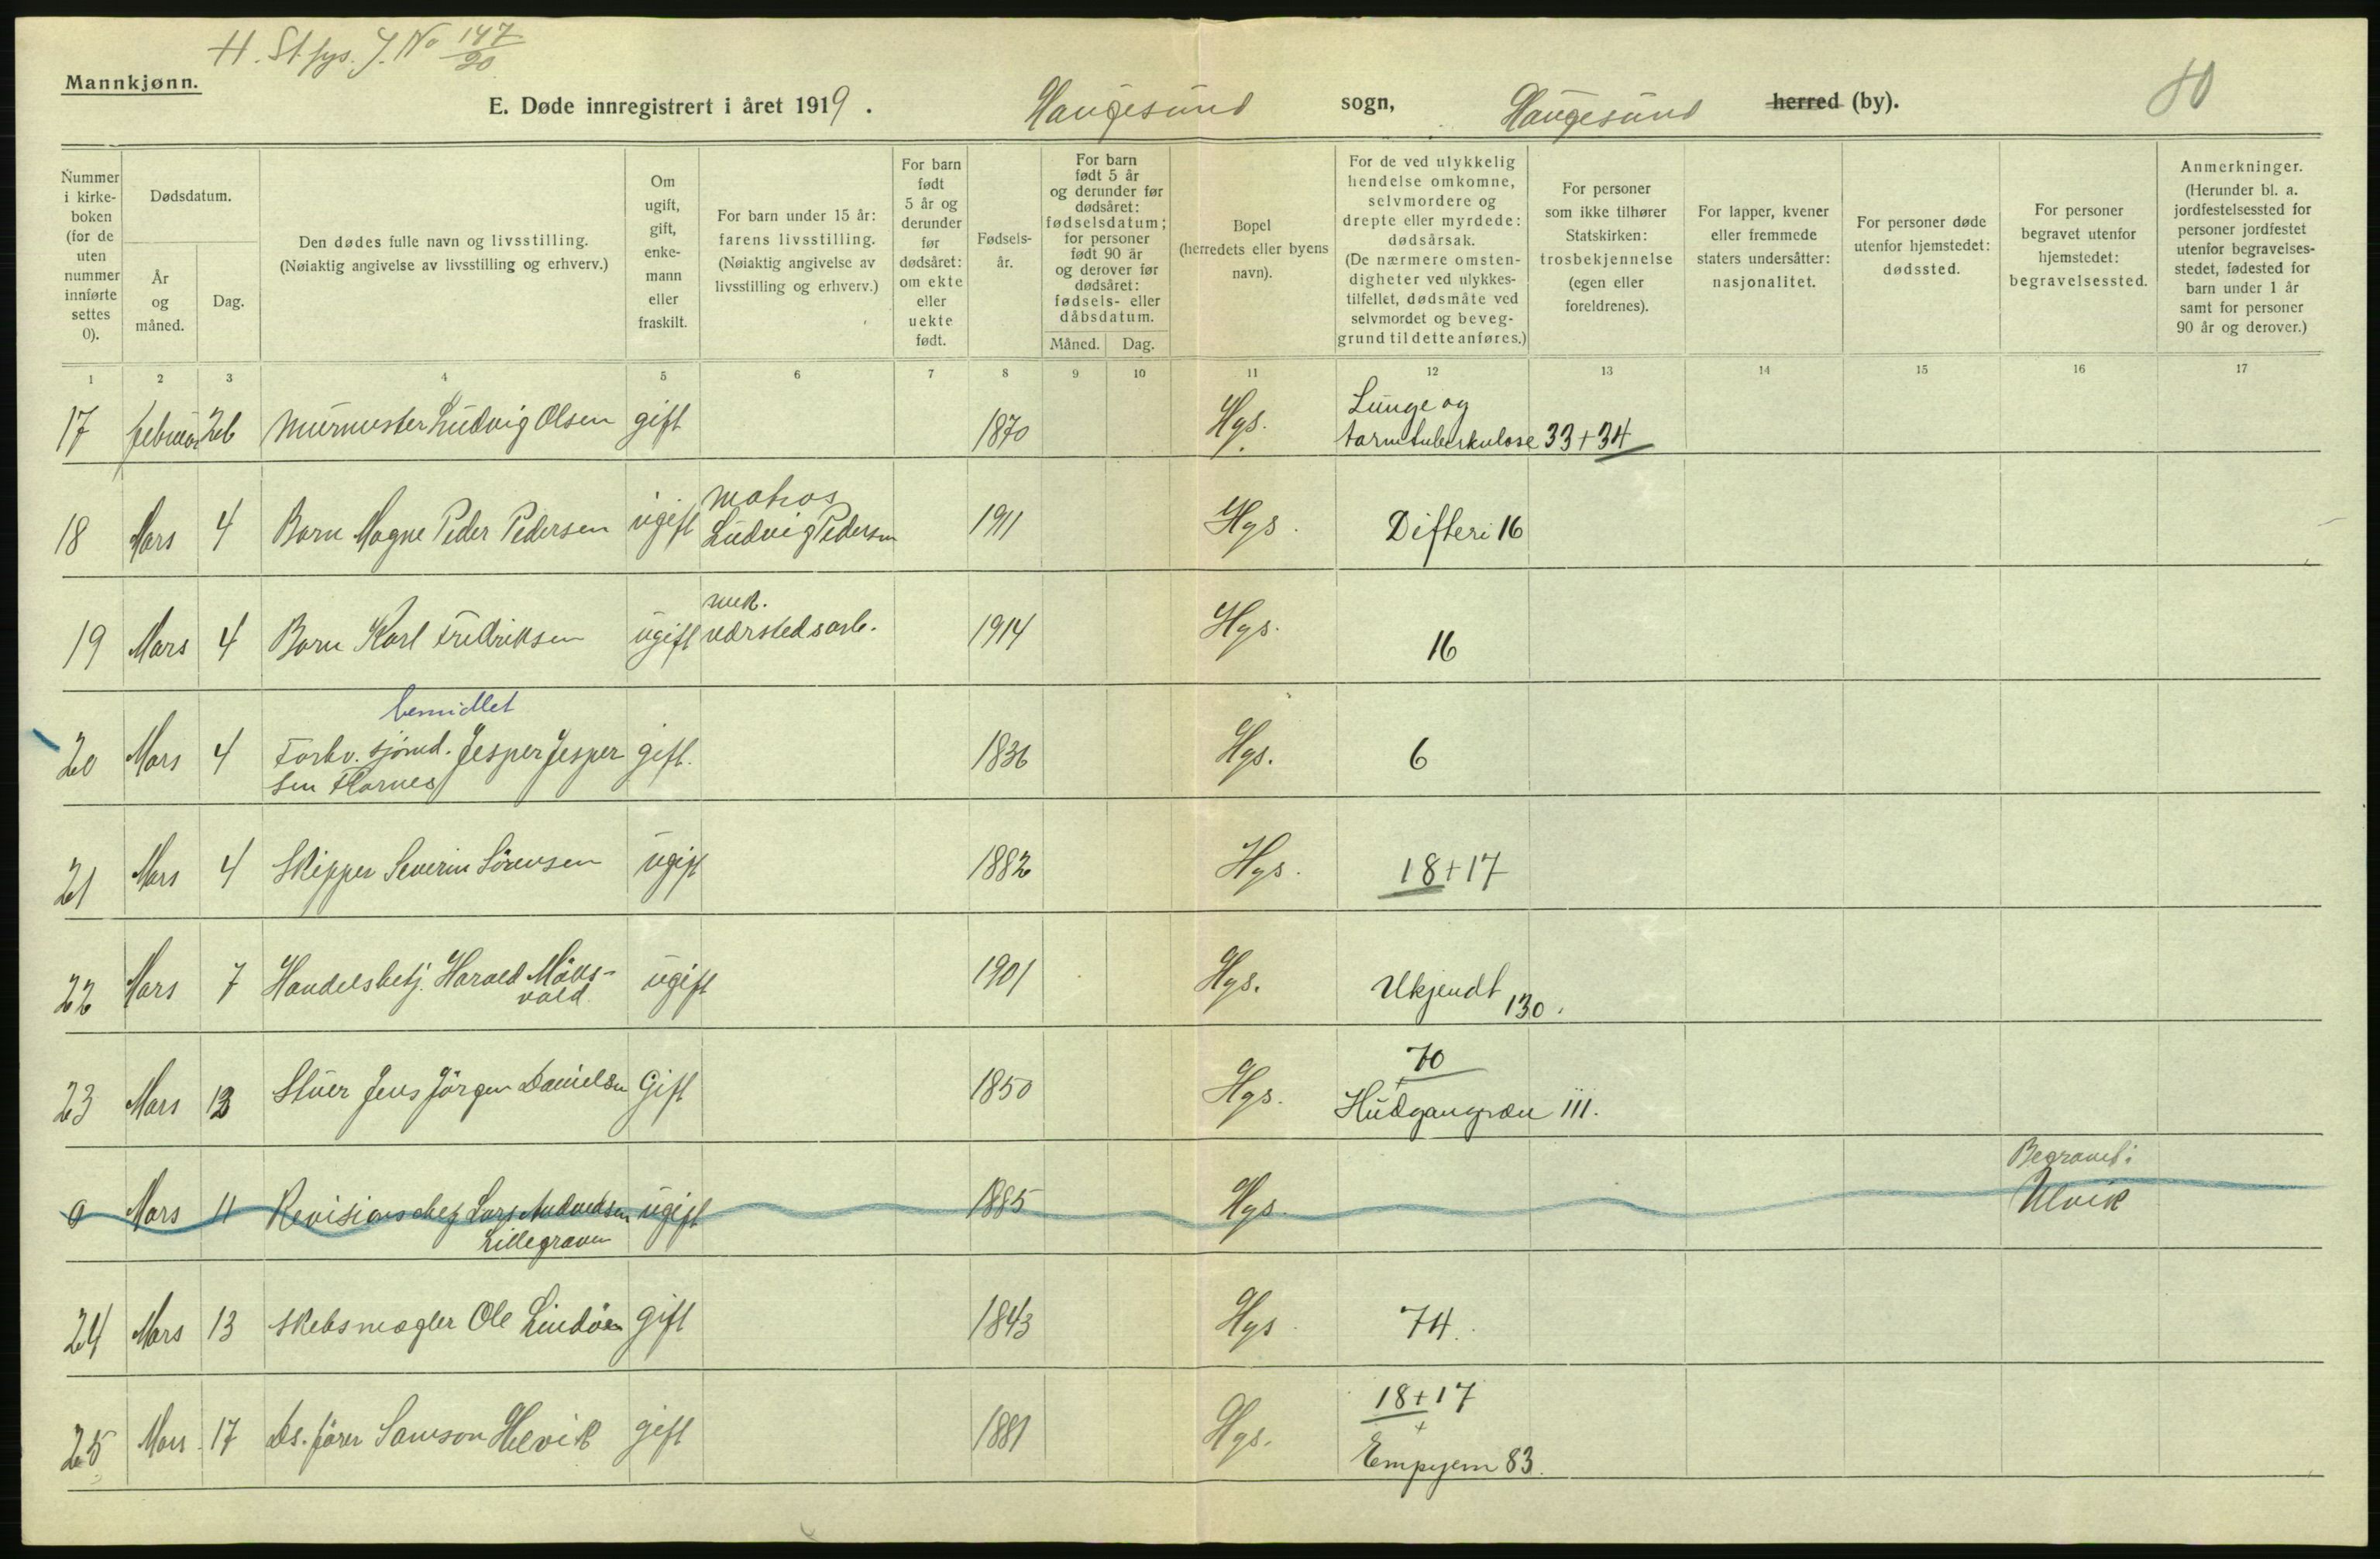 H. St.fys. J. No 147/20
Mannkjønn.
E. Døde innregistrert i året 1919. Haugesund sogn, Haugesund herred (by). 80
Nummer i kirke-boken (for de uten nummer innførte settes 0).
Dødsdatum.
År og måned.
Dag.
Den dødes fulle navn og livsstilling. (Nøiaktig angivelse av livsstilling og erhverv.)
Om ugift, gift, enke-mann eller fraskilt.
For barn under 15 år: farens livsstilling. (Nøiaktig angivelse av livsstilling og erhverv.)
For barn født 5 år og derunder før dødsåret: om ekte eller uekte født.
Fødsels-år.
For barn født 5 år og derunder før dødsåret: fødselsdatum; for personer født 90 år og derover før dødsåret: fødsels- eller dåbsdatum.
Måned. Dag.
Bopel (herredets eller byens navn).
For de ved ulykkelig hendelse omkomne, selvmordere og drepte eller myrdede: dødsårsak. (De nærmere omsten-digheter ved ulykkes-tilfellet, dødsmåte ved selvmordet og beveg-grund til dette anføres.)
For personer som ikke tilhører Statskirken: trosbekjennelse (egen eller foreldrenes).
For lapper, kvener eller fremmede staters undersåtter: nasjonalitet.
For personer døde utenfor hjemstedet: dødssted.
For personer begravet utenfor hjemstedet: begravelsessted.
Anmerkninger. (Herunder bl. a. jordfestelsessted for personer jordfestet utenfor begravelses-stedet, fødested for barn under 1 år samt for personer 90 år og derover.)
1 2 3 4 5 6 7 8 9 10 11 12 13 14 15 16 17
17 februar 26 Murmester Ludvig Olsen gift 1870 Hgs. Lunge og
tarmtuberkulose 33+34
18 Mars 4 Barn Magne Peder Pedersen ugift Matros
Ludvig Pedersen 1911 Hgs. Difteri 16
19 Mars 4 Barn Karl Fredriksen ugift mek.
værstedsarb. 1914 Hgs. 16
bemidlet
20 Mars 4 Forhv. sjømd. Jesper Jesper gift. 1836 Hgs. 6
sen Flornes
21 Mars 4 Skipper Severin Sörensen ugift 1882 Hgs. 18+17
22 Mars 7 Handelsbetj. Harald Måks-
vold ugift 1901 Hgs. Ukjendt 130.
23 Mars 12 Stuer Jens Jörgen Danielsen Gift 1850 Hgs. 70
+
Hudgangræn 111.
Begravet i
0 Mars 11 Revisionschef Lars Andredsen ugift 1885 Hgs. Ulvik
Lillegraven
24 Mars 13 Skibsmægler Ole Lindöen gift 1843 Hgs 74.
25 Mars 17 Ds. förer Samson Helvik gift 1881 Hgs. 18+17
+
Empyem 83.